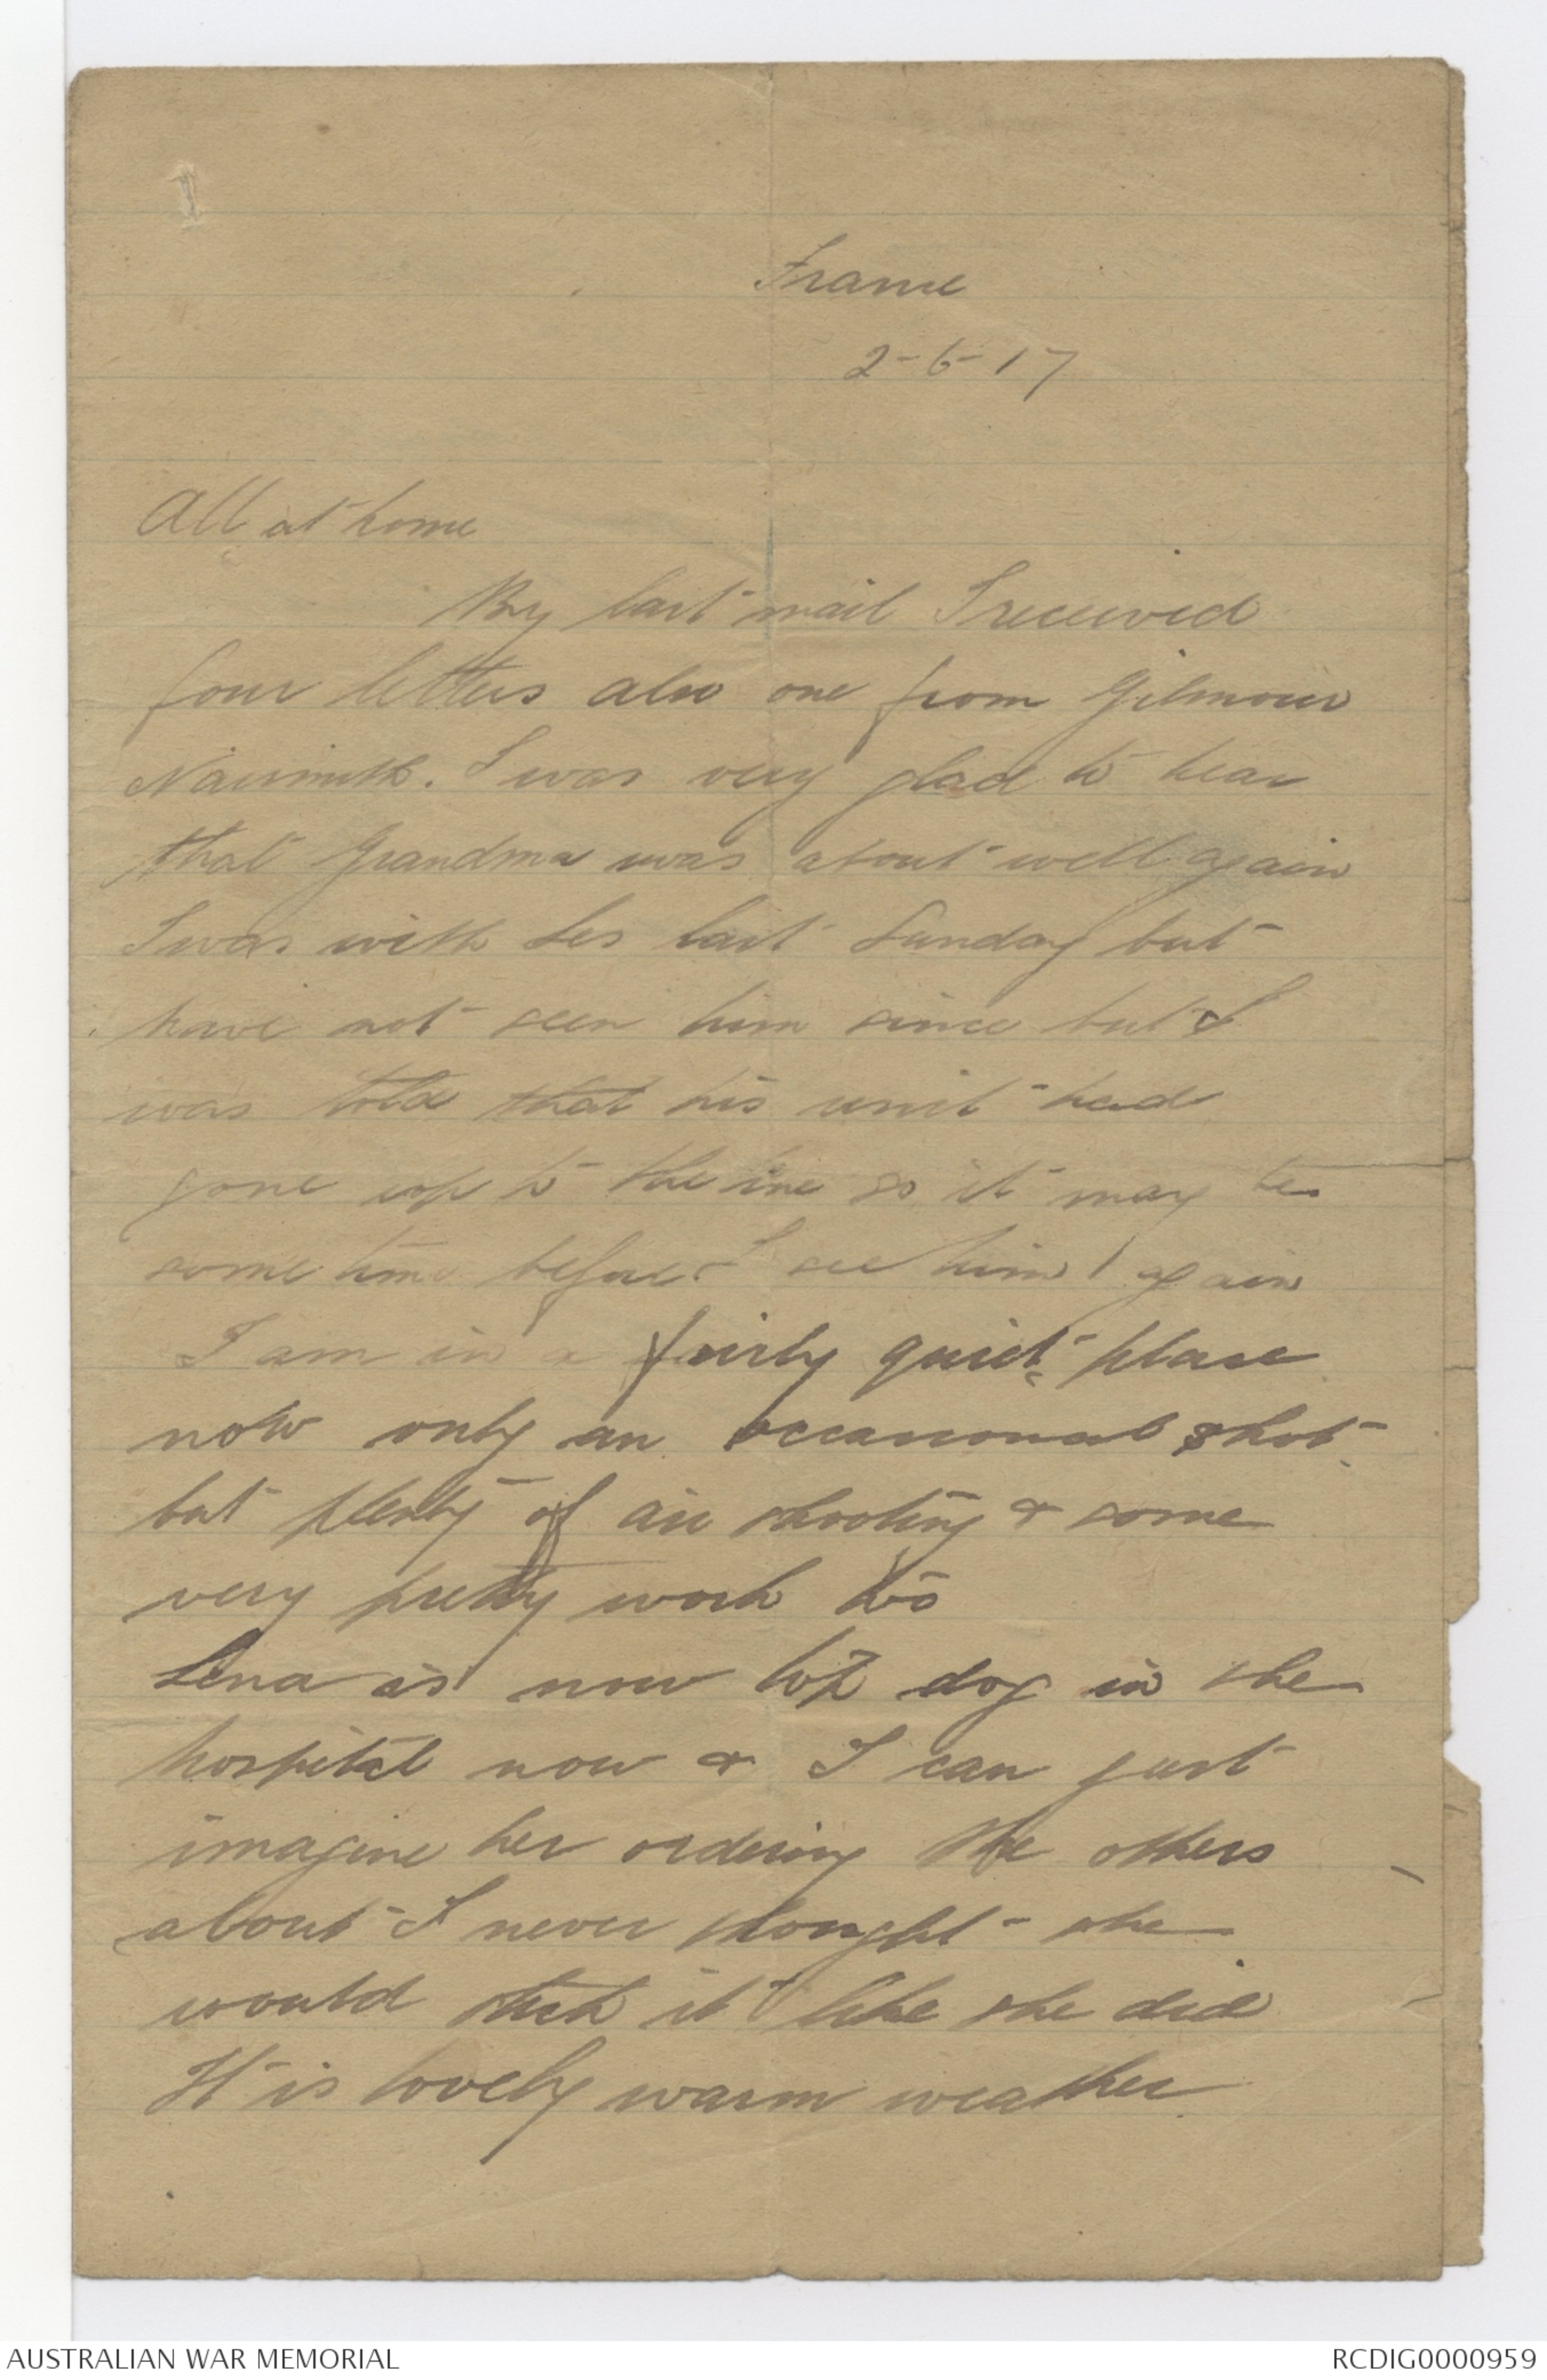 France
2-6-17
All at home
By last mail I received
four letters also one from Gilmour
Naismith. I was very glad to hear
that Grandma was about well again
I was with Les last Sunday but
have not seen him since but I
was told that his unit had
gone up to the line so it may be
some time before I see him again
I am in a fairly quiet place
now only an occasional shot
but plenty of air shooting & some
very pretty work too
Lena is now top dog in the
hospital now & I can just
imagine her ordering the others
about I never thought she
would stick it like she did
It is lovely warm weather
AUSTRALIAN WAR MEMORIAL
RCDIG0000959